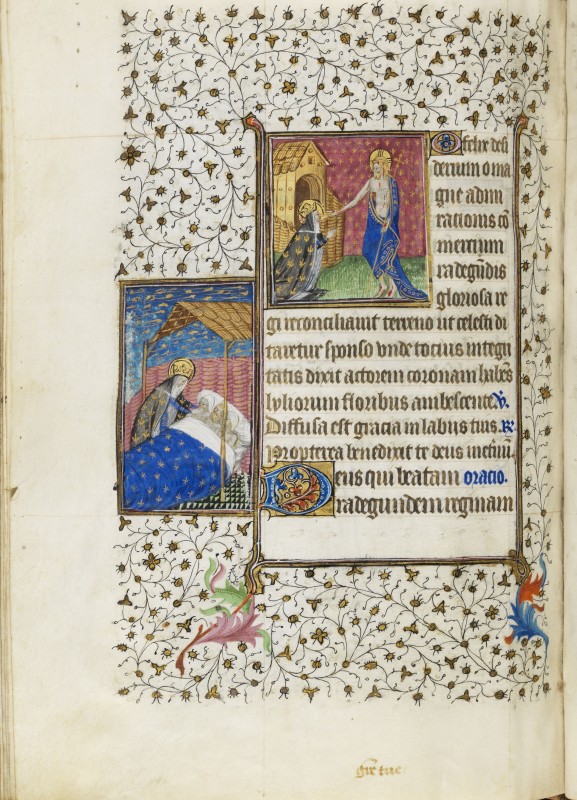 O felix desi
derium o ma
gne admi
rationis cō
mercium
radegūdis
gloriosa re
gi reconciliauit terreno ut celesti di
taretur sponso vnde tocius integri
tatis dixit actorem coronam habēs
lyliorum floribus ambescente. ℣.
Diffusa est gracia in labiis tuis. ℟.
Propterea benedixit te deus in eternū.
Deus qui beatam oracio.
radegundem reginam